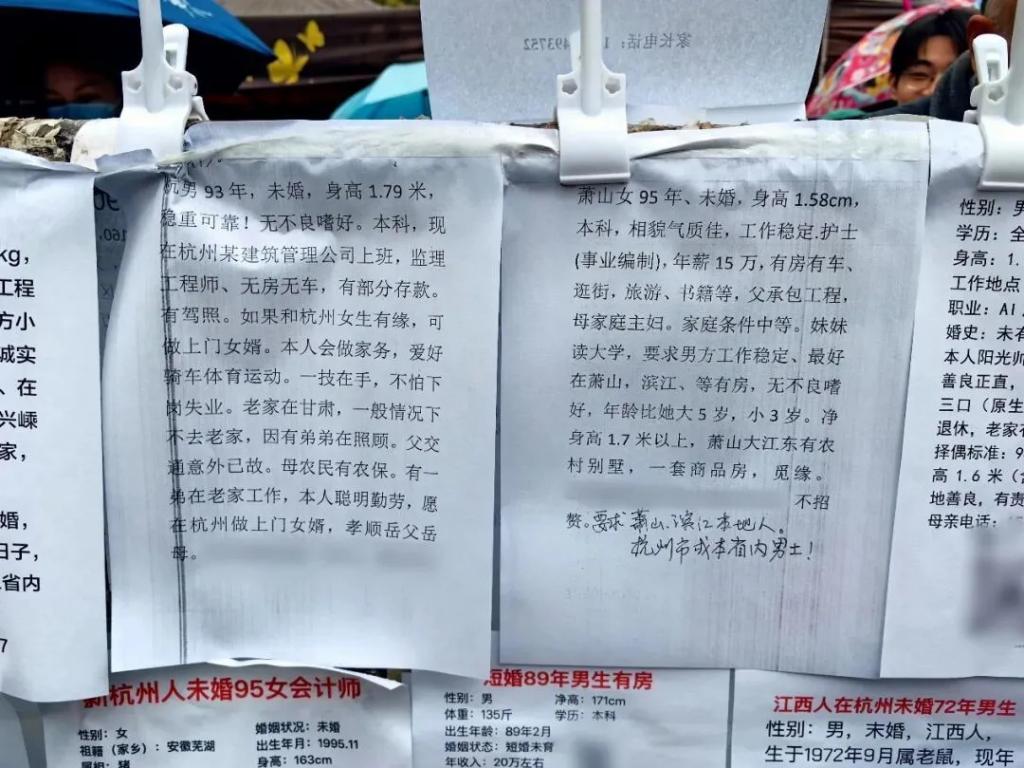 家长电话：1 493752
杭男93年，未婚，身高1.79米，
稳重可靠！无不良嗜好。本科，现
在杭州某建筑管理公司上班，监理
工程师、无房无车，有部分存款。
有驾照。如果和杭州女生有缘，可
做上门女婿。本人会做家务，爱好
骑车体育运动。一技在手，不怕下
岗失业。老家在甘肃，一般情况下
不去老家，因有弟弟在照顾。父交
通意外已故。母农民有农保。有一
弟在老家工作，本人聪明勤劳，愿
在杭州做上门女婿，孝顺岳父岳
母。
萧山女95年、未婚，身高1.58cm，
本科，相貌气质佳，工作稳定.护士
(事业编制)，年薪15万，有房有车、
逛街，旅游、书籍等，父承包工程，
母家庭主妇。家庭条件中等。妹妹
读大学，要求男方工作稳定、最好
在萧山，滨江、等有房，无不良嗜
好，年龄比她大5岁，小3岁。净
身高1.7米以上，萧山大江东有农
村别墅，一套商品房，觅缘。
不招
赘。要求萧山、滨江本地人。
杭州市或本省内男士！
kg，
工程
方小
诚实
、在
兴嵊
家，
婚，
日子，
省内
7
性别：男
学历：全
身高：1.
工作地点
职业：AI
婚史：未有
本人阳光帅
善良正直，
三口（原生
退休，老家在
择偶标准：9
高1.6米（
地善良，有责
母亲电话：1
新杭州人未婚95女会计师
性别：女
婚姻状况：未婚
祖籍（家乡）：安徽芜湖
出生年月：1995.11
属相：猪
身高：163cm
短婚89年男生有房
性别：男
净高：171cm
体重：135斤
学历：本科
出生年龄：89年2月
婚姻状态：短婚未育
年收入：20万左右
江西人在杭州未婚72年男生
性别：男，未婚，江西人，
生于1972年9月属老鼠，现年